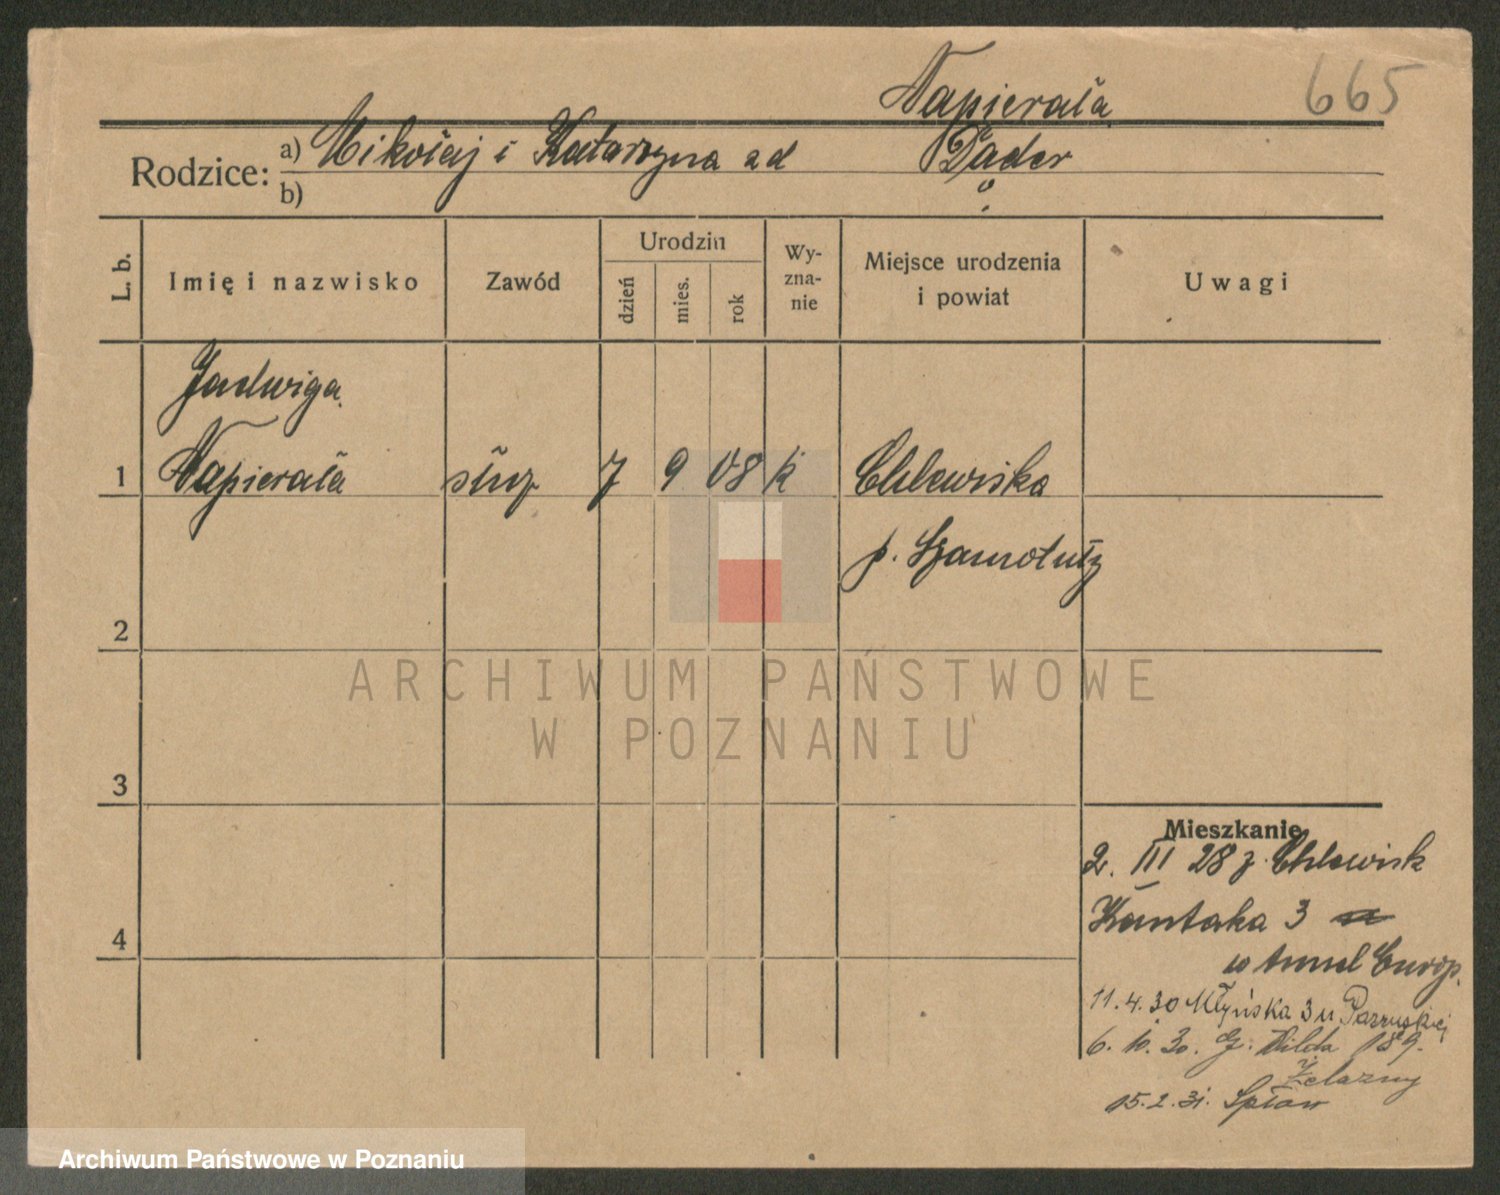 665
Napierała
Rodzice: a) Mikołaj i Katarzyna zd
b)
L. b.
Imię i nazwisko
Zawód
Urodzin
dzień
mies.
rok
Wy-
zna-
nie
Miejsce urodzenia
i powiat
Uwagi
Jadwiga
1 Napierała służ 7 9 08 k Chlewiska
p. Szamotuły
2
3
4
Mieszkanie
2. III 28 z Chlewisk
Kantaka 3
w tunel Europ.
11.4.30 Młyńska 3 u
6. 10. 30. G. Wilda 189.
Żelazny
15.2.31. Spław
ARCHIWUM PAŃSTWOWE
W POZNANIU
Archiwum Państwowe w Poznaniu